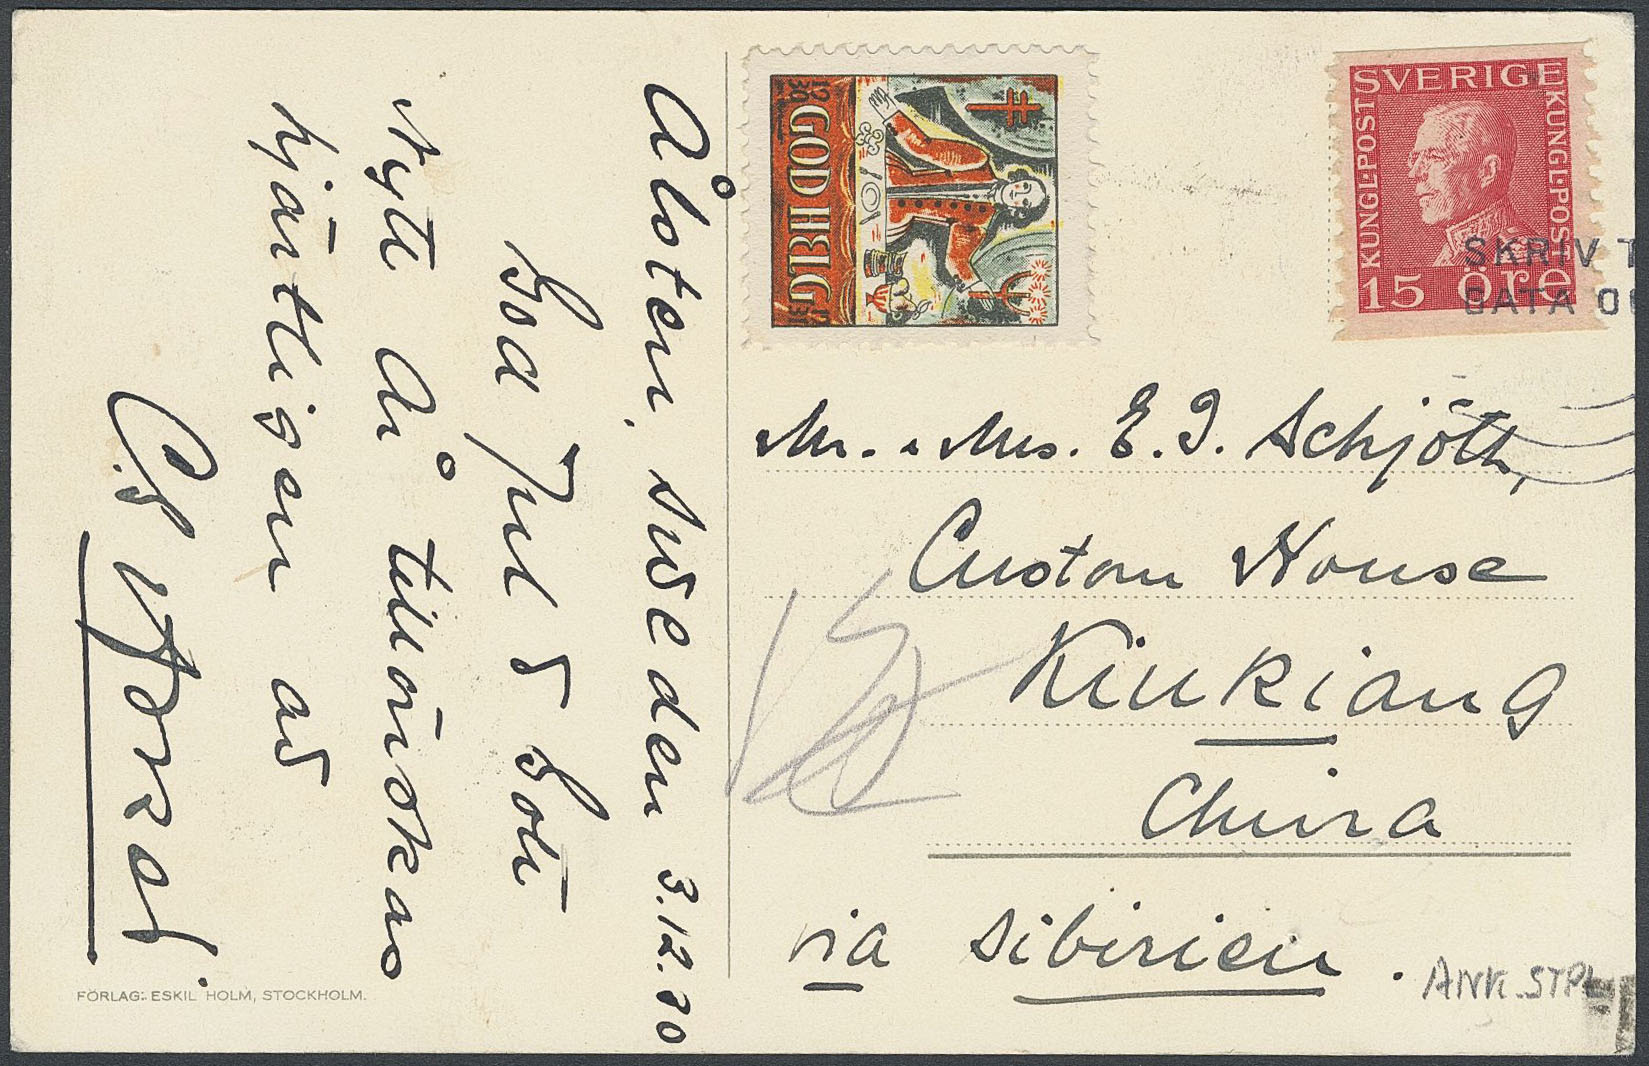 Ålsten, Sweden 3.12.30
God Jul & Gott
Nytt År tillönskas
hjärtligen av
FÖRLAG: ESKIL HOLM, STOCKHOLM.
GOD HELG
SVERIGE
KUNGL·POST
KUNGL·POST
15 ÖRE
SKRIV T
GATA O
Mr. & Mrs. E. I. Schjöth,
Custom House
Kiukiang
China
via Sibirien.
ANK. STPL